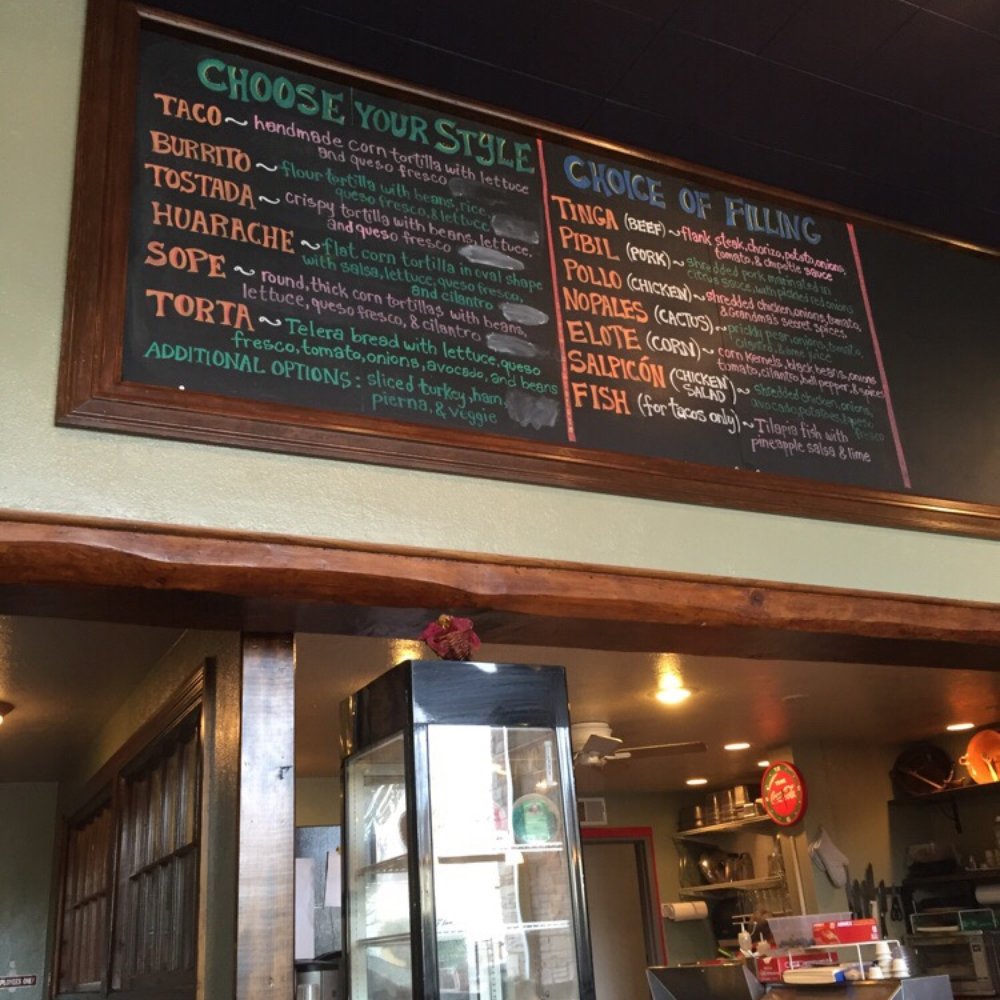 CHOOSE YOUR STYLE
TACO ~ handmade corn tortilla with lettuce
and queso fresco
BURRITO ~ flour tortilla with beans, rice,
queso fresco, & lettuce
TOSTADA ~ crispy tortilla with beans, lettuce,
and queso fresco
HUARACHE ~ flat corn tortilla in oval shape
with salsa, lettuce, queso fresco,
and cilantro
SOPE ~ round, thick corn tortillas with beans,
lettuce, queso fresco, & cilantro
TORTA ~ Telera bread with lettuce, queso
fresco, tomato, onions, avocado, and beans
ADDITIONAL OPTIONS: sliced turkey, ham,
pierna, & veggie
CHOICE OF FILLING
TINGA (BEEF) ~ flank steak, chorizo, potato, onions,
tomato, & chipotle sauce
PIBIL (PORK) ~ shredded pork marinated in
citrus sauce, with pickled red onions
POLLO (CHICKEN) ~ shredded chicken, onions, tomato,
& Grandma's secret spices
NOPALES (CACTUS) ~ prickly pear, onions, tomato,
cilantro, & lime juice
ELOTE (CORN) ~ corn kernels, black beans, onions
tomato, cilantro, bell pepper, & spices
SALPICÓN (CHICKEN SALAD) ~ shredded chicken, onions,
avocado, potatoes, & queso
fresco
FISH (for tacos only) ~ Tilapia fish with
pineapple salsa & lime
Coca-Cola
EMPLOYEES ONLY